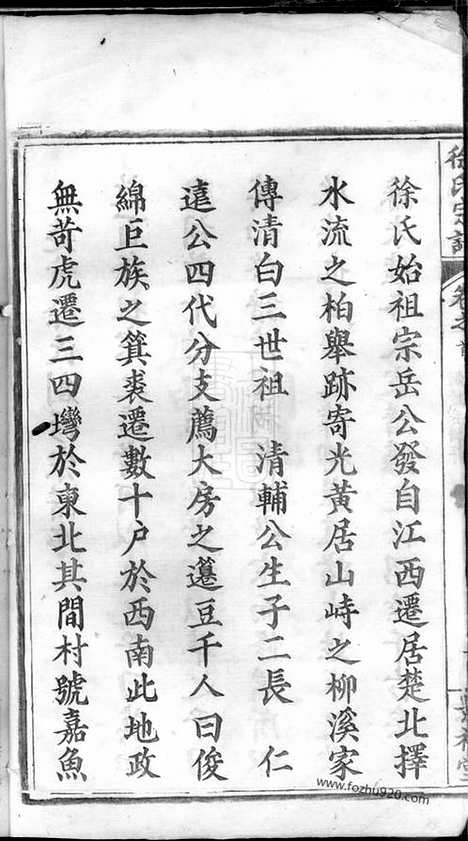 徐氏宗譜
徐氏始祖宗岳公發自江西遷居楚北擇
水流之柏舉跡寄光黃居山峙之柳溪家
傳清白三世祖 清輔公生子二長 仁
遠公四代分支薦大房之籩豆千人曰俊
綿巨族之箕裘遷數十户於西南此地政
無苛虎遷三四塆於東北其間村號嘉魚
www.fozhu920.com